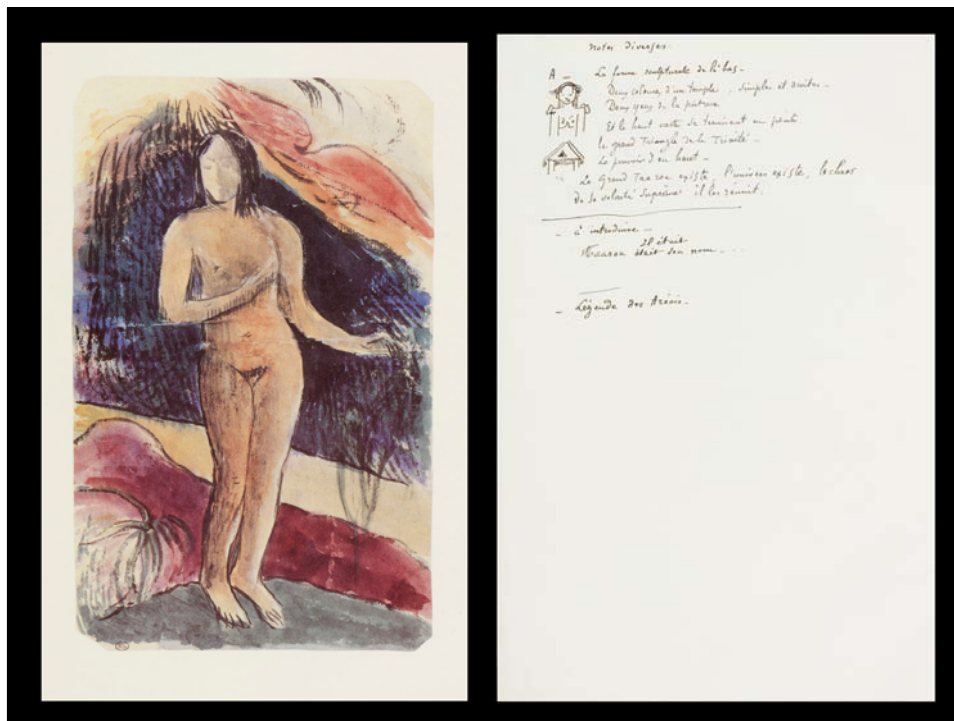 Notes diverses.
A - La forme sculpturale de là bas -
Deux colonnes d'un temple, simples et droites -
Deux yeux de la poitrine
Et le haut vaste se terminant en pointe
le grand Triangle de la Trinité -
Le pouvoir d'en haut -
Le Grand Taaroa existe, l'univers existe, le chaos
De sa volonté suprême il les réunit.
- à introduire -
Il était
Taaroa était son nom - . . .
- Légende des Aréois -